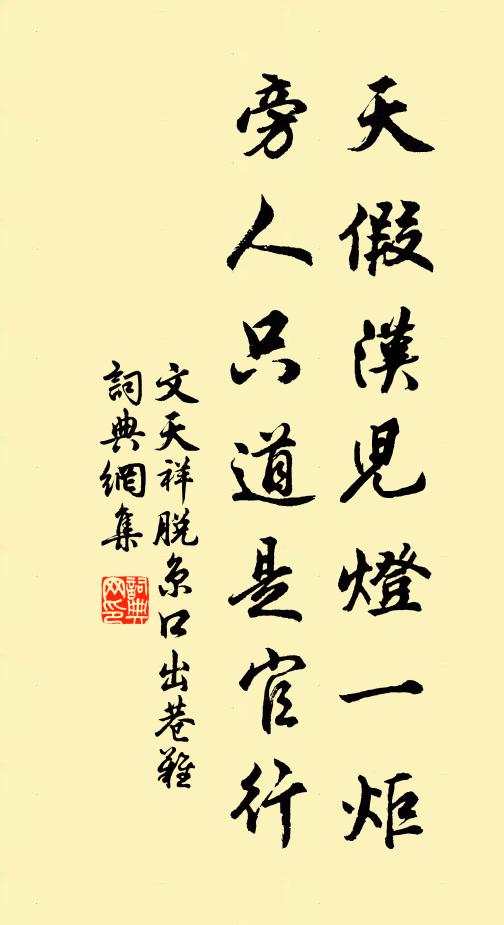 天假漢兒燈一炬
旁人只道是官行
文天祥脱京口出巷難
詞典網集
詞典网印